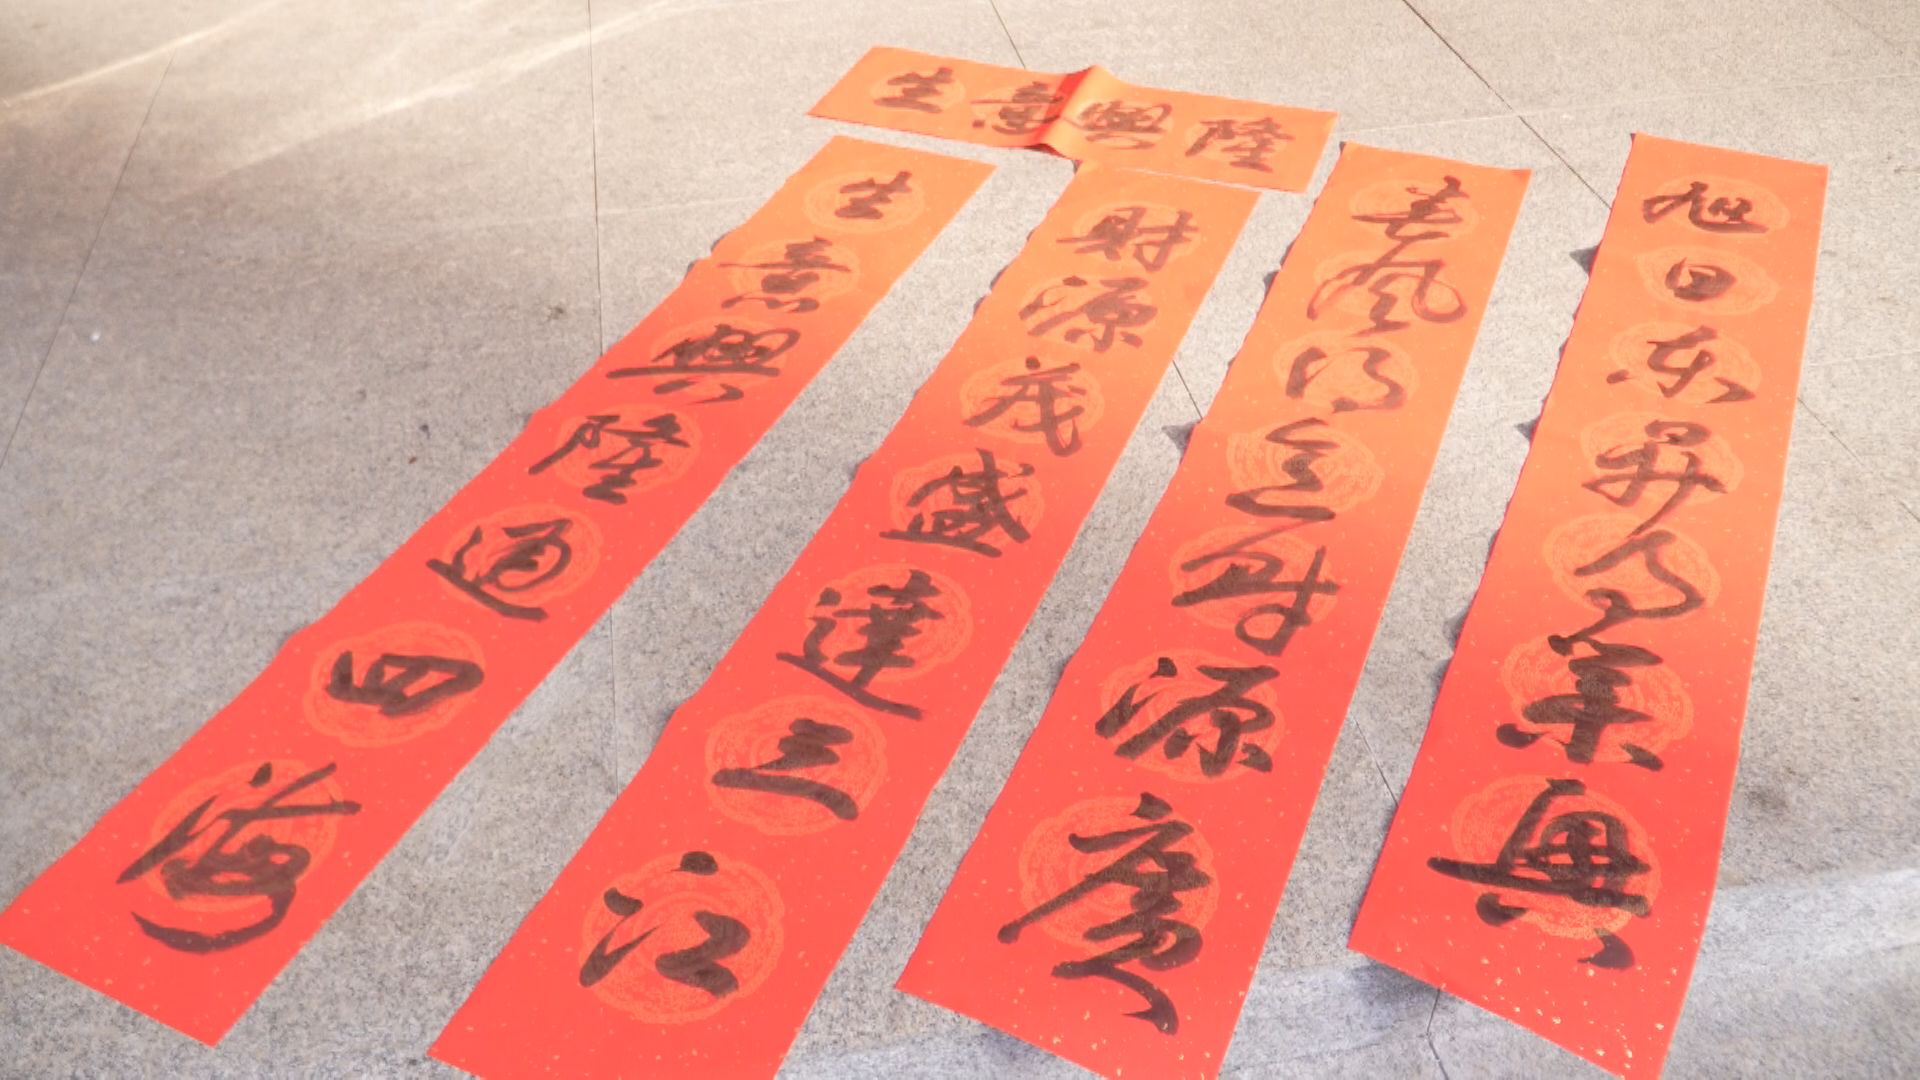 生意興隆
生意興隆通四海
財源茂盛達三江
春風得意財源廣
旭日东昇業興